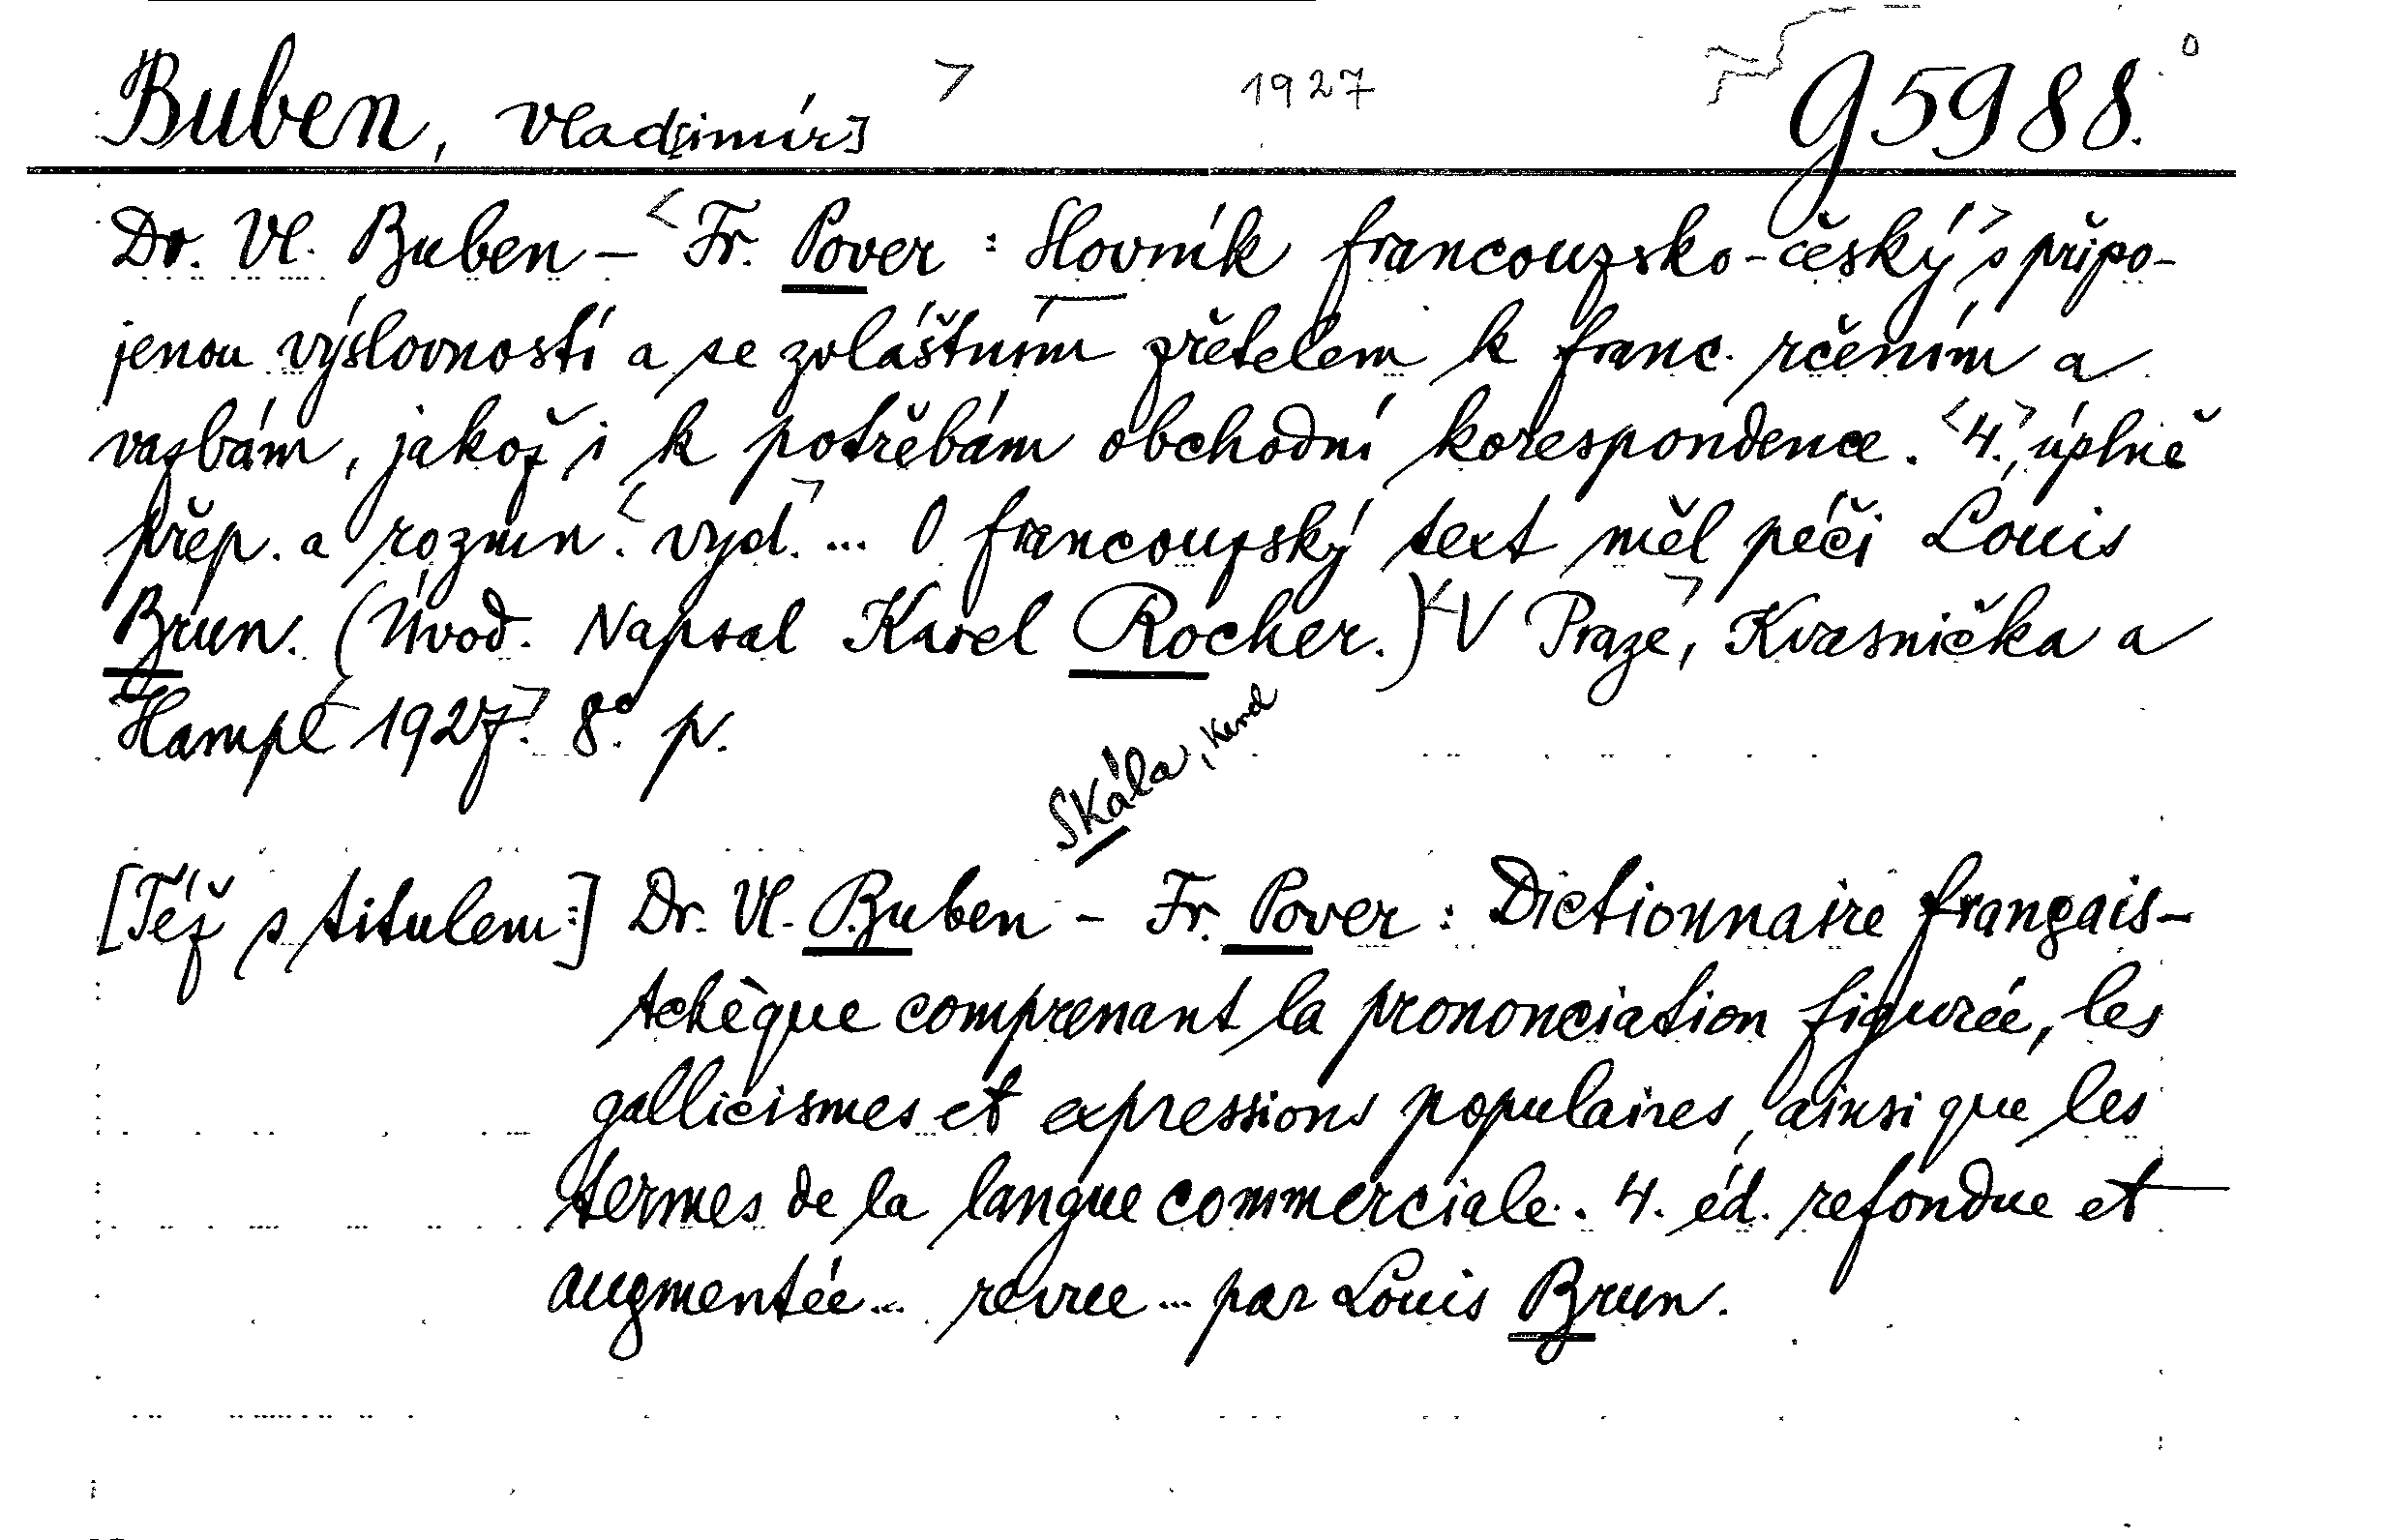 Buben, Vlad[imír] > 1927 g 5988.
Dr. Vl. Buben – <Fr. Pover : Slovník francouzsko-český> s připo-
jenou výslovností a se zvláštním zřetelem k franc. rčením a
vazbám, jakož i k potřebám obchodní korespondence. <4.>, úplně
přep. a rozmn. <vyd.> ... O francouzský text měl péči Louis
Brun. (Úvod. Napsal Karel Rocher.) <V Praze>, Kvasnička a
Hampl <1927>. 8° p.
Skála,
[Též s titulem:] Dr. Vl. Buben – Fr. Pover : Dictionnaire français-
tchèque comprenant la prononciation figurée, les
gallicismes et expressions populaires, ainsi que les
termes de la langue commerciale. 4. éd. refondue et
augmentée... revue ... par Louis Brun.